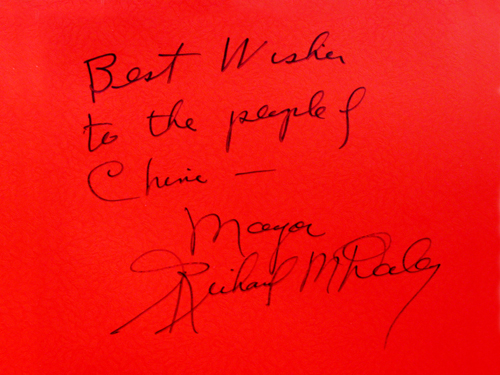 Best Wishes
to the people of
China —
Mayor
Richard M Daley